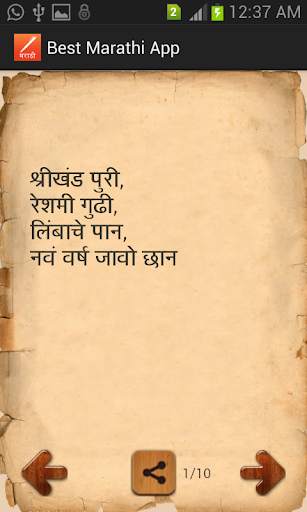 2
12:37 AM
मराठी
Best Marathi App
श्रीखंड पुरी,
रेशमी गुढी,
लिंबाचे पान,
नवं वर्ष जावो छान
1/10